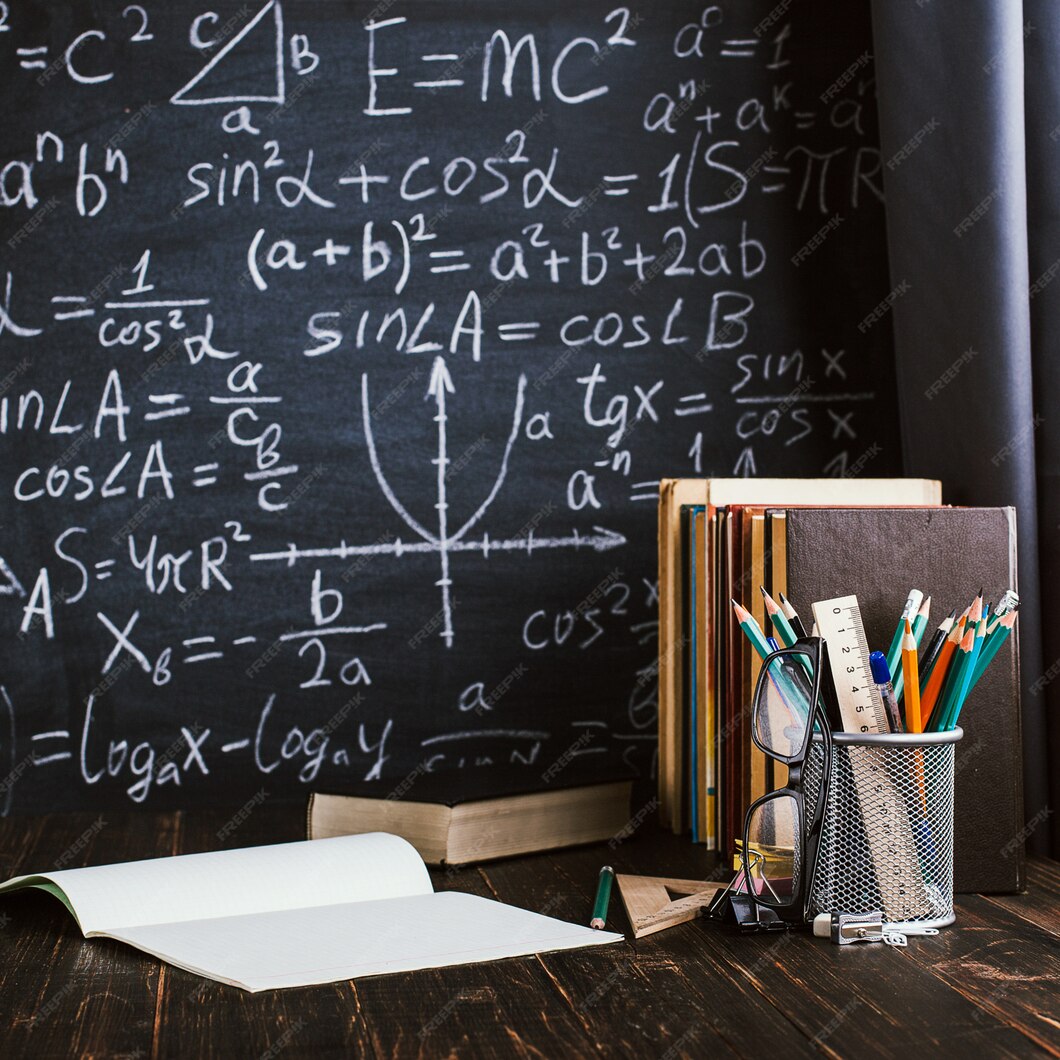 ² = c²   c B   E = MC²   a⁰ = 1
a
aⁿ + aᴷ = aⁿ
aⁿbⁿ   sin²α + cos²α = 1 (S = πR
(a+b)² = a² + b² + 2ab
α = 1/cos²α   sin∠A = cos∠B
in∠A = a/c   a   tgx = sin x/cos x
cos∠A = в/c   a⁻ⁿ = 1
S = 4πR²
A
Xв = - b/2a   cos² x
) = logₐx - logₐy   a
0
1
2
3
4
5
6